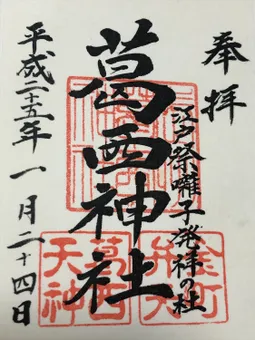 奉拝
江戸祭囃子発祥の社
葛西神社
平成二十五年一月二十四日
葛西
天神